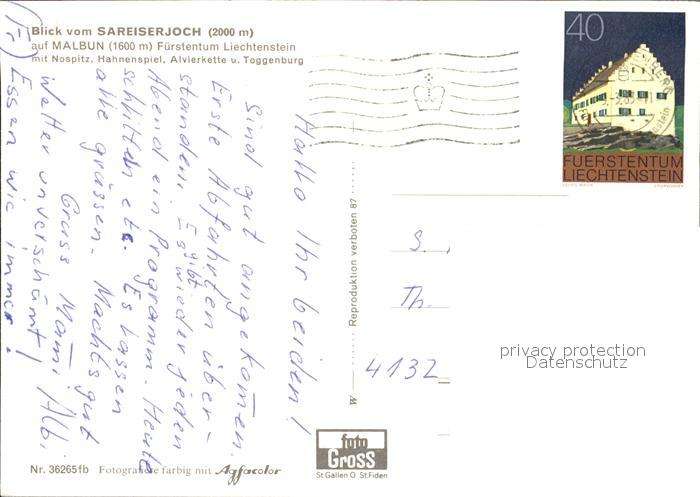 Blick vom SAREISERJOCH (2000 m)
auf MALBUN (1600 m) Fürstentum Liechtenstein
mit Nospitz, Hahnenspiel, Alvierkette u. Toggenburg
40
FUERSTENTUM
LIECHTENSTEIN
Hallo Ihr beiden!
Sind gut angekomen.
Erste Abfahrten über-
standen. Es gibt
wieder jeden
Abend ein Programm. Heute
schlitteln etc. Es lassen
alle grüssen. Machts gut
Gruss Mami, Albi
Wetter unverschämt!
Essen wie immer!
S.
Th.
4132
W
Reproduktion verboten 87
privacy protection
Datenschutz
foto
Gross
St Gallen O St Fiden
Nr. 36265fb Fotografie farbig mit Agfacolor